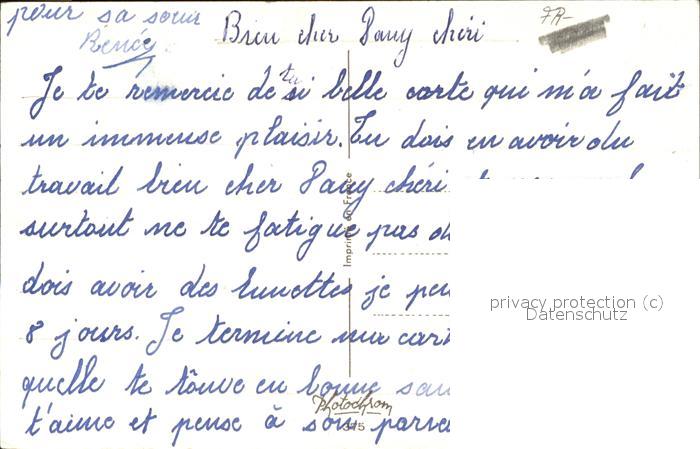 pour sa sœur
Renée
FR-
Bien cher Dany chéri
Je te remercie de ta si belle carte qui m'a fait
un immense plaisir. Tu dois en avoir du
travail bien cher Dany chéri
surtout ne te fatigue pas
dois avoir des lunettes je
8 jours. Je termine ma
quelle te trouve en bonne
t'aime et pense à son
Imprimé en France
Photochrom
315
privacy protection (c)
Datenschutz